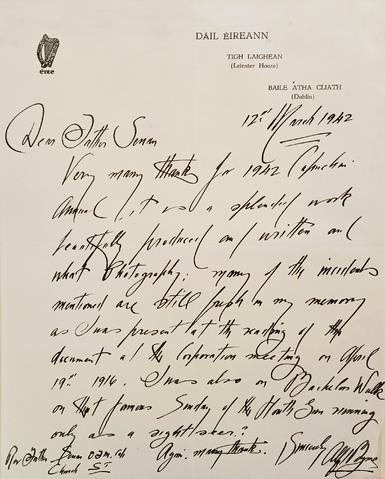 éire
DÁIL ÉIREANN
TIGH LAIGHEAN
(Leinster House)
BAILE ÁTHA CLIATH
(Dublin)
March 1942
Dear Father Senan
Very many thanks for 1942 Capuchin
Annual, it is a splendid work
beautifully produced and written and
what Photography: many of the incidents
mentioned are still fresh in my memory
as I was present at the reading of the
document at the Corporation meeting on April
19th 1916. I was also on Bachelors Walk
on that famous Sunday of the Howth Gun running
only as a sightseer:
Again many thanks.
Sincerely
Rev Father Senan O.F.M. Cap
Church ST